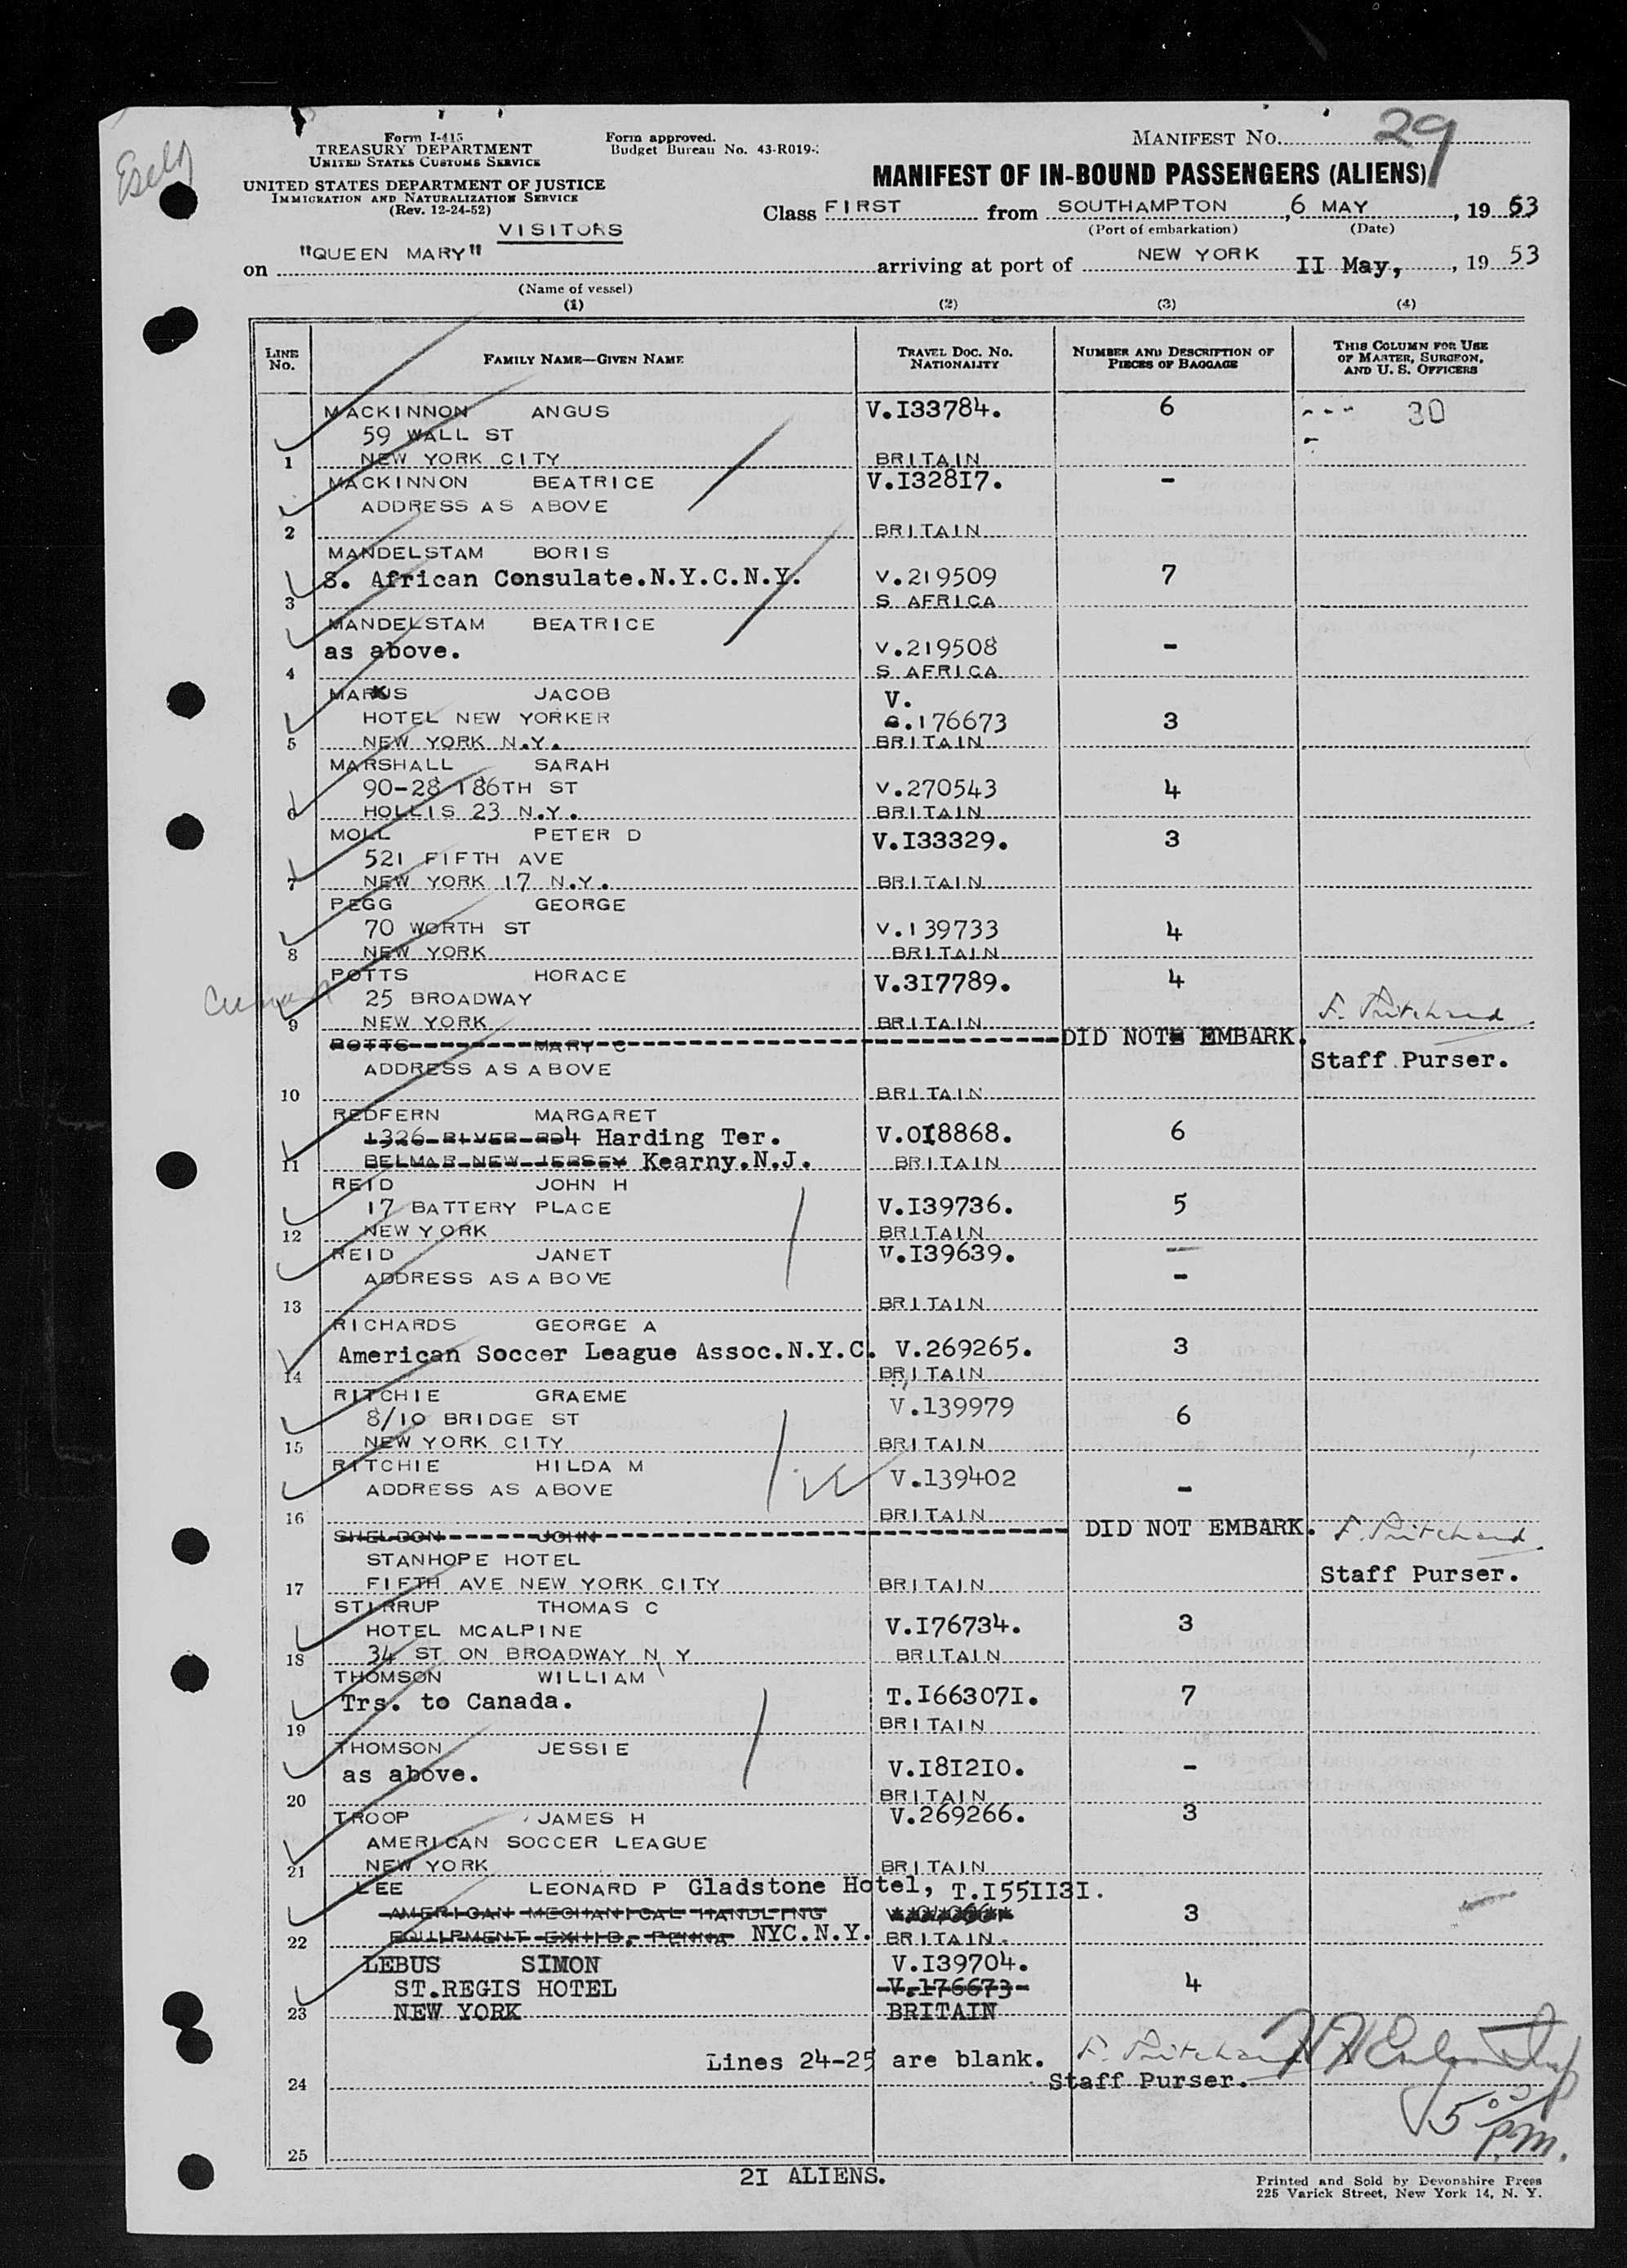 Form I-415
TREASURY DEPARTMENT
UNITED STATES CUSTOMS SERVICE
Form approved.
Budget Bureau No. 43-R019-
MANIFEST NO. 29
UNITED STATES DEPARTMENT OF JUSTICE
IMMIGRATION AND NATURALIZATION SERVICE
(Rev. 12-24-52)
MANIFEST OF IN-BOUND PASSENGERS (ALIENS)
Class FIRST from SOUTHAMPTON, 6 MAY, 19 53
(Port of embarkation) (Date)
VISITORS
on "QUEEN MARY" arriving at port of NEW YORK II May, 19 53
(Name of vessel)
(1) (2) (3) (4)
LINE NO.
FAMILY NAME—GIVEN NAME
TRAVEL DOC. NO. NATIONALITY
NUMBER AND DESCRIPTION OF PIECES OF BAGGAGE
THIS COLUMN FOR USE OF MASTER, SURGEON, AND U. S. OFFICERS
MACKINNON ANGUS V.I33784. 6 30
59 WALL ST
1 NEW YORK CITY BRITAIN
MACKINNON BEATRICE V.I328I7. -
ADDRESS AS ABOVE
2 BRITAIN
MANDELSTAM BORIS
S. African Consulate.N.Y.C.N.Y. V.219509 7
3 S AFRICA
MANDELSTAM BEATRICE
as above. V.219508 -
4 S AFRICA
MARKUS JACOB V.
HOTEL NEW YORKER .176673 3
5 NEW YORK N.Y. BRITAIN
MARSHALL SARAH
90-28 186TH ST V.270543 4
6 HOLLIS 23 N.Y. BRITAIN
MOLL PETER D V.I33329. 3
521 FIFTH AVE
7 NEW YORK 17 N.Y. BRITAIN
PEGG GEORGE
70 WORTH ST V.139733 4
8 NEW YORK BRITAIN
POTTS HORACE V.3I7789. 4
25 BROADWAY
9 NEW YORK BRITAIN F. Pritchard
POTTS MARY C DID NOT EMBARK.
ADDRESS AS ABOVE Staff Purser.
10 BRITAIN
REDFERN MARGARET
1326 RIVER RD 4 Harding Ter. V.OI8868. 6
11 BELMAR NEW JERSEY Kearny.N.J. BRITAIN
REID JOHN H
17 BATTERY PLACE V.I39736. 5
12 NEW YORK BRITAIN
REID JANET V.I39639. -
ADDRESS AS ABOVE -
13 BRITAIN
RICHARDS GEORGE A
American Soccer League Assoc.N.Y.C. V.269265. 3
14 BRITAIN
RITCHIE GRAEME V.139979
8/10 BRIDGE ST 6
15 NEW YORK CITY BRITAIN
RITCHIE HILDA M V.139402
ADDRESS AS ABOVE -
16 BRITAIN
SHELDON JOHN DID NOT EMBARK. F. Pritchard
STANHOPE HOTEL
17 FIFTH AVE NEW YORK CITY BRITAIN Staff Purser.
STIRRUP THOMAS C
HOTEL MCALPINE V.I76734. 3
18 34 ST ON BROADWAY N Y BRITAIN
THOMSON WILLIAM
Trs. to Canada. T.I66307I. 7
19 BRITAIN
THOMSON JESSIE
as above. V.I8I2IO. -
20 BRITAIN
TROOP JAMES H V.269266. 3
AMERICAN SOCCER LEAGUE
21 NEW YORK BRITAIN
LEE LEONARD P Gladstone Hotel, T.I55II3I.
AMERICAN MECHANICAL HANDLING 3
22 EQUIPMENT EXHIB, PENNA NYC.N.Y. BRITAIN.
LEBUS SIMON V.I39704.
ST.REGIS HOTEL V.176673 4
23 NEW YORK BRITAIN
Lines 24-25 are blank. F. Pritchard
24 Staff Purser.
5 00 P.M.
25
2I ALIENS.
Printed and Sold by Devonshire Press
225 Varick Street, New York 14, N. Y.